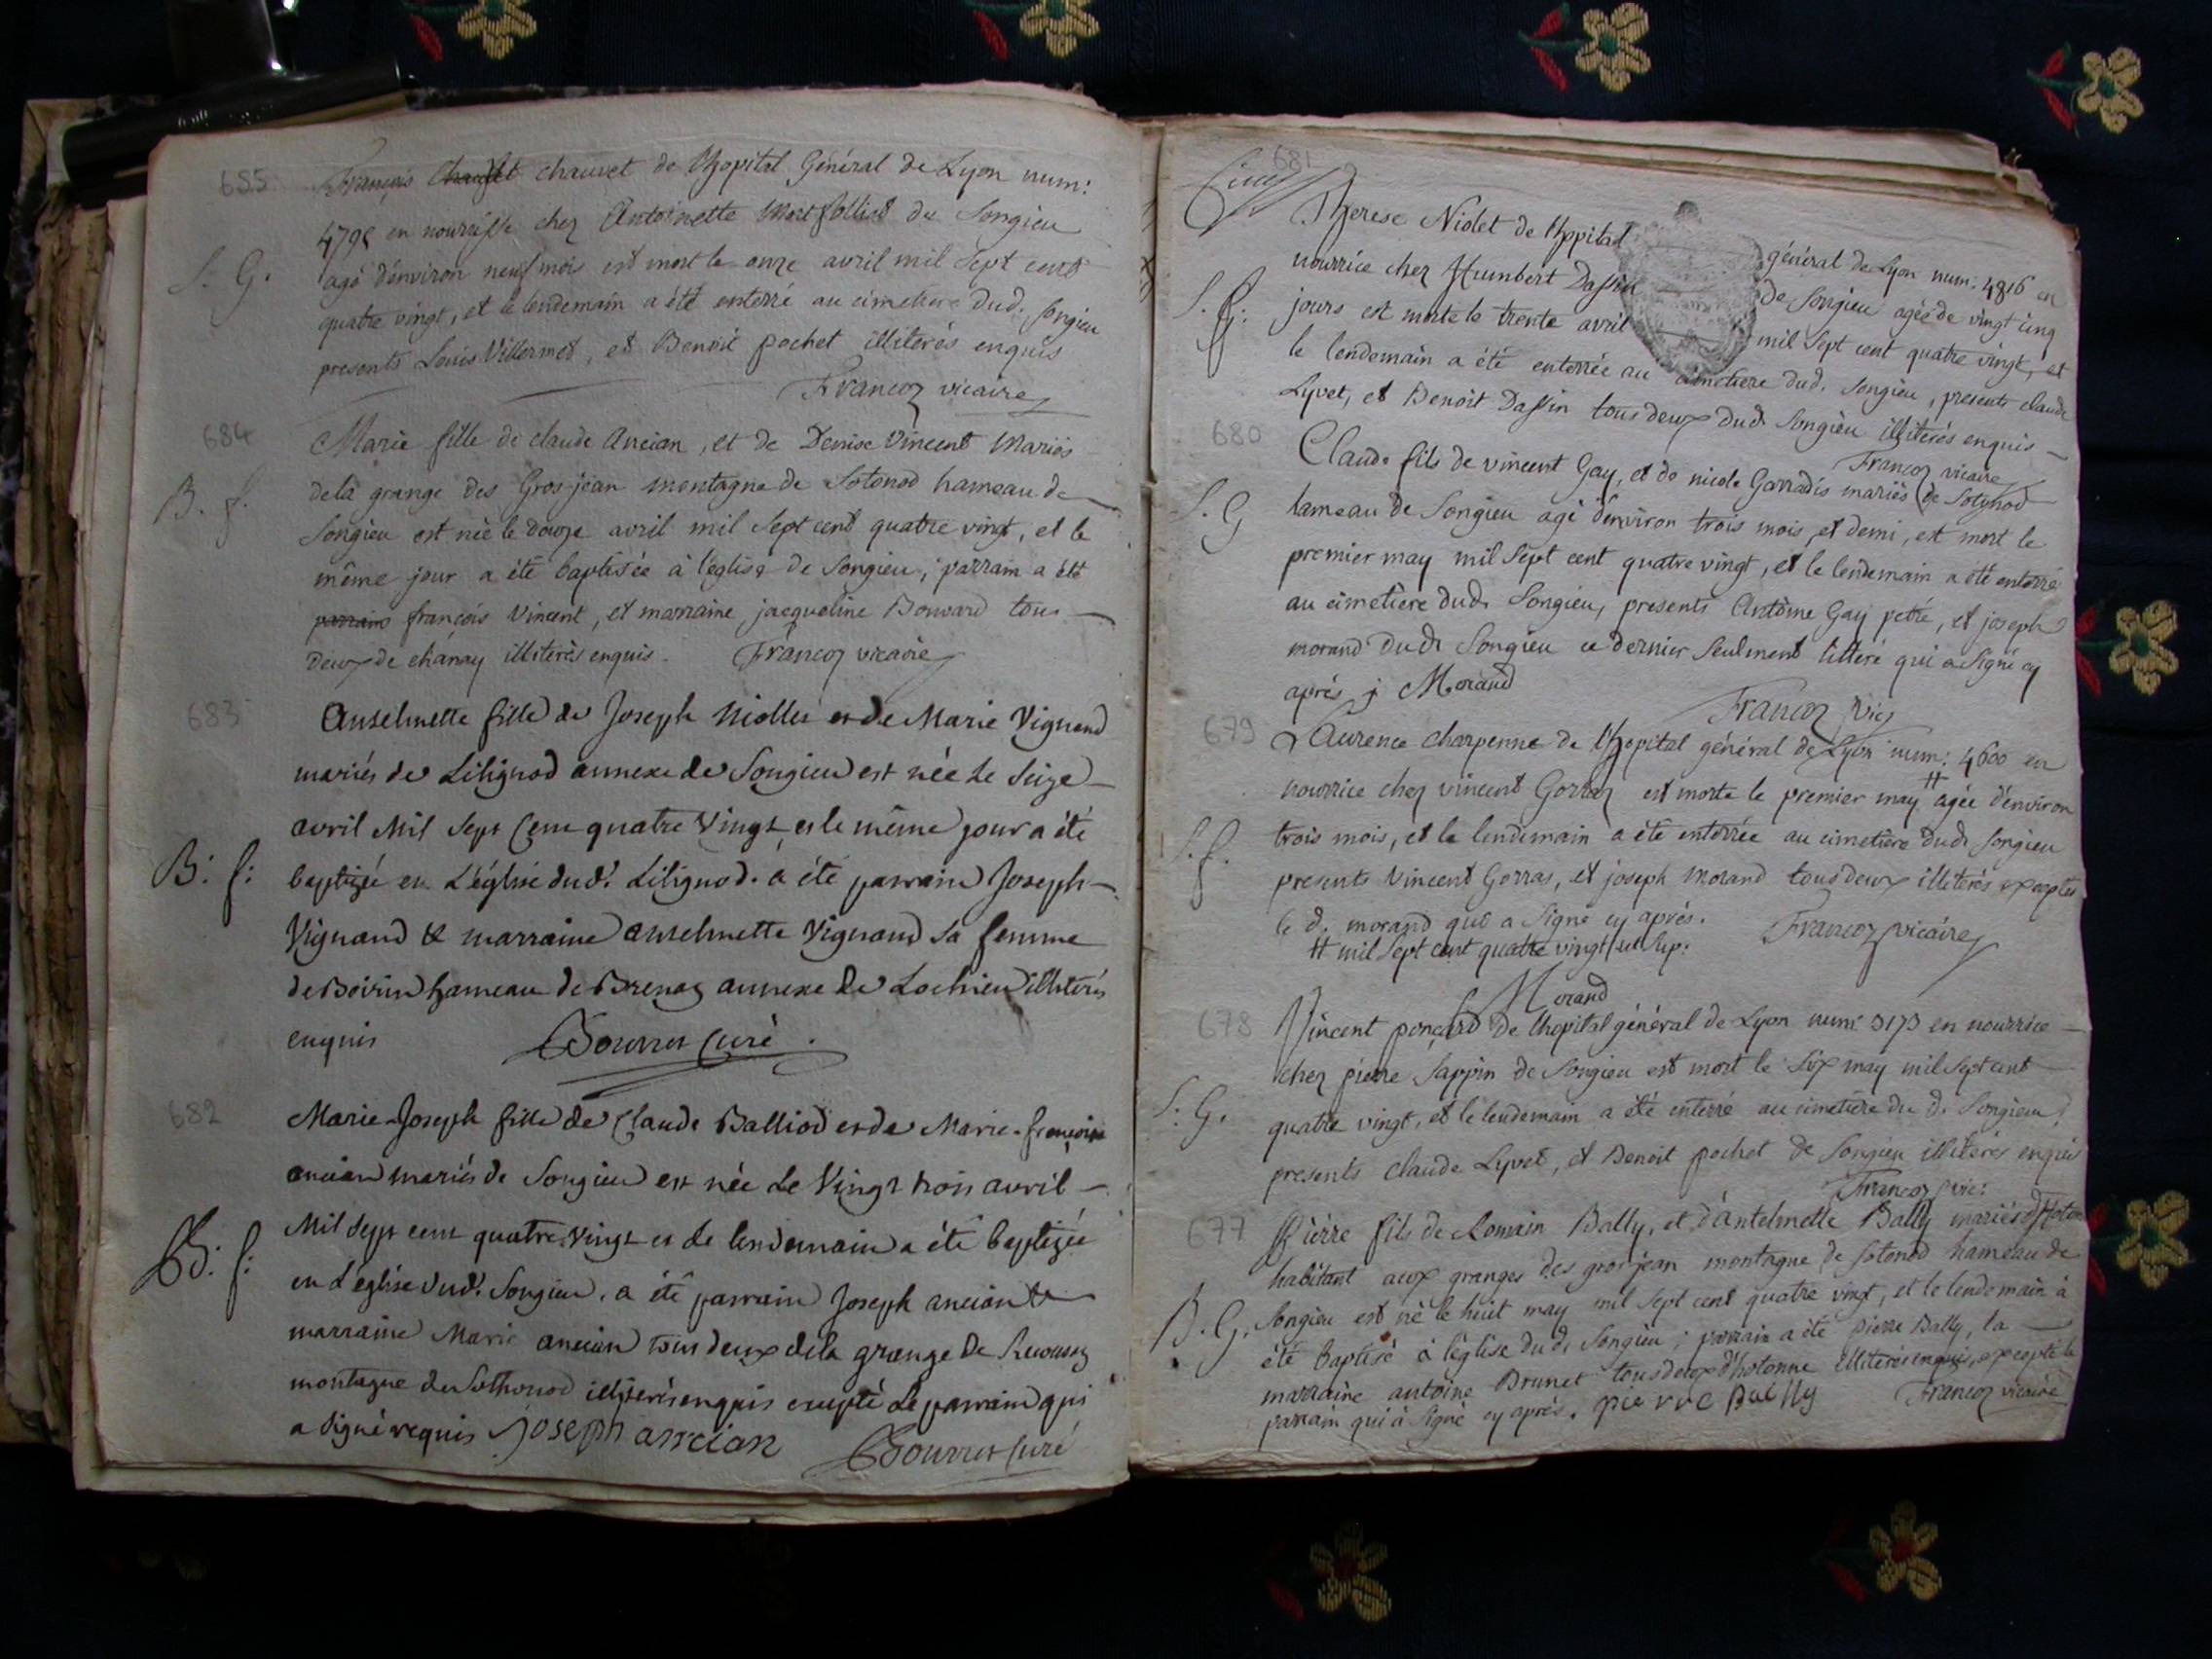 685
François chauvet de l'hopital Général de Lyon num:
4798 en nourrisse chez Antoinette Montfolliet de Songieu
S. G.
agé d'environ neuf mois est mort le onze avril mil sept cent
quatre vingt, et le lendemain a été enterré au cimetiere dud. Songieu
presents Louis Villermet, et Benoit pochet illiterés enquis
Francoz vicaire
684
Marie fille de claude Ancian, et de Denise Vincent Mariés
B. f.
dela grange des Gros jean montagne de Sotonod hameau de
Songieu est née le douze avril mil sept cent quatre vingt, et le
même jour a été baptisée à l'eglise de Songieu, parrain a été
parrain françois Vincent, et marraine jacqueline Bonvard tous
deux de chânay illiterés enquis. Francoz vicaire
683
Anselmette fille de Joseph Niollet et de Marie Vignand
mariés de Lilignod annexe de Songieu est née le seize
avril Mil sept Cent quatre Vingt et le même jour a été
B: f:
baptizée en L'église dud. Lilignod. a été parrain Joseph
Vignand & marraine anselmette Vignand sa femme
de Boirin hameau de Brenaz annexe de Lochieu illiterés
enquis Bourret Curé.
682
Marie-Joseph fille de Claude Balliod et de Marie-françoise
ancian mariés de Songieu est née le Vingt trois avril
B: f:
Mil sept cent quatre Vingt et le lendemain a été baptizée
en L'église dud. Songieu. a été parrain Joseph ancian &
marraine Marie ancian tous deux dela grange de
montagne de Sothonod illiterés enquis excepté le parrain qui
a signé requis Joseph anncian Bourret Curé
681
Therese Niolet de l'hopital général de Lyon num. 4816 en
nourrice chez Humbert Dassin de Songieu agée de vingt cinq
S. f.
jours est morte le trente avril mil sept cent quatre vingt, et
le lendemain a été enterrée au cimetiere dud. Songieu, presents claude
Lyvet, et Benoit Dassin tous deux dud. Songieu illiterés enquis
Francoz vicaire
680
Claude fils de vincent Gay, et de nicole Garradis mariés de Sotonod
S. G
hameau de Songieu agé d'environ trois mois, et demi, est mort le
premier may mil sept cent quatre vingt, et le lendemain a été enterré
au cimetiere dud. Songieu, presents Antoine Gay petre, et joseph
morand dud. Songieu ce dernier seulment litteré qui a signé cy
après j Morand
Francoz Vic
679
Laurence charpenne de l'hopital général de Lyon num: 4600 en
nourrice chez vincent Gorraz est morte le premier may # agée d'environ
S. f.
trois mois, et le lendemain a été enterrée au cimetiere dud. Songieu
presents Vincent Gorras, et joseph morand tous deux illiterés exceptés
le d. morand qui a signé cy après. Francoz vicaire
# mil sept cent quatre vingt ut sup.
Morand
678
Vincent ponçard de l'hopital général de Lyon num: 3173 en nourrice
chez pierre Sappin de Songieu est mort le six may mil sept cent
S. G.
quatre vingt, et le lendemain a été enterré au cimetiere du d. Songieu
presents claude Lyvet, et Benoit pochet de Songieu illiterés enquis
Francoz vic:
677
Pierre fils de Romain Bally, et d'Antelmette Bally mariés d'
habitant aux granges des gros jean montagne de sotonod hameau de
B. G.
Songieu est né le huit may mil sept cent quatre vingt, et le lendemain à
été baptisé à l'église dud. Songieu; parrain a été Pierre Bally, la
marraine antoine Brunet tous deux d'hotonne illiterés enquis, excepté le
parrain qui à signé cy après. pierre Bailly Francoz vicaire